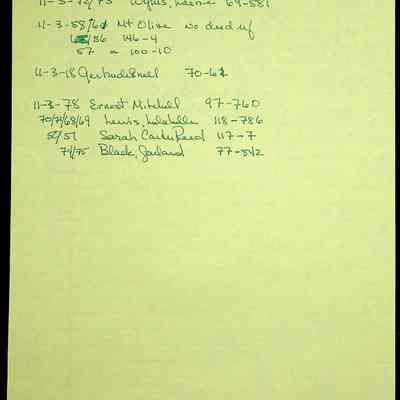 11-3-72/73 Wynns, Leonie 64-581
11-3-58/60 Mt Olive no deed of
/56 146-4
57 100-10
11-3-18 Gertrude Snell 70-62
11-3-78 Ernest Mitchell 97-760
70/71/68/69 Lewis, 118-786
52/57 Sarah Carter Reed 117-7
74/75 Black, Garland 77-542